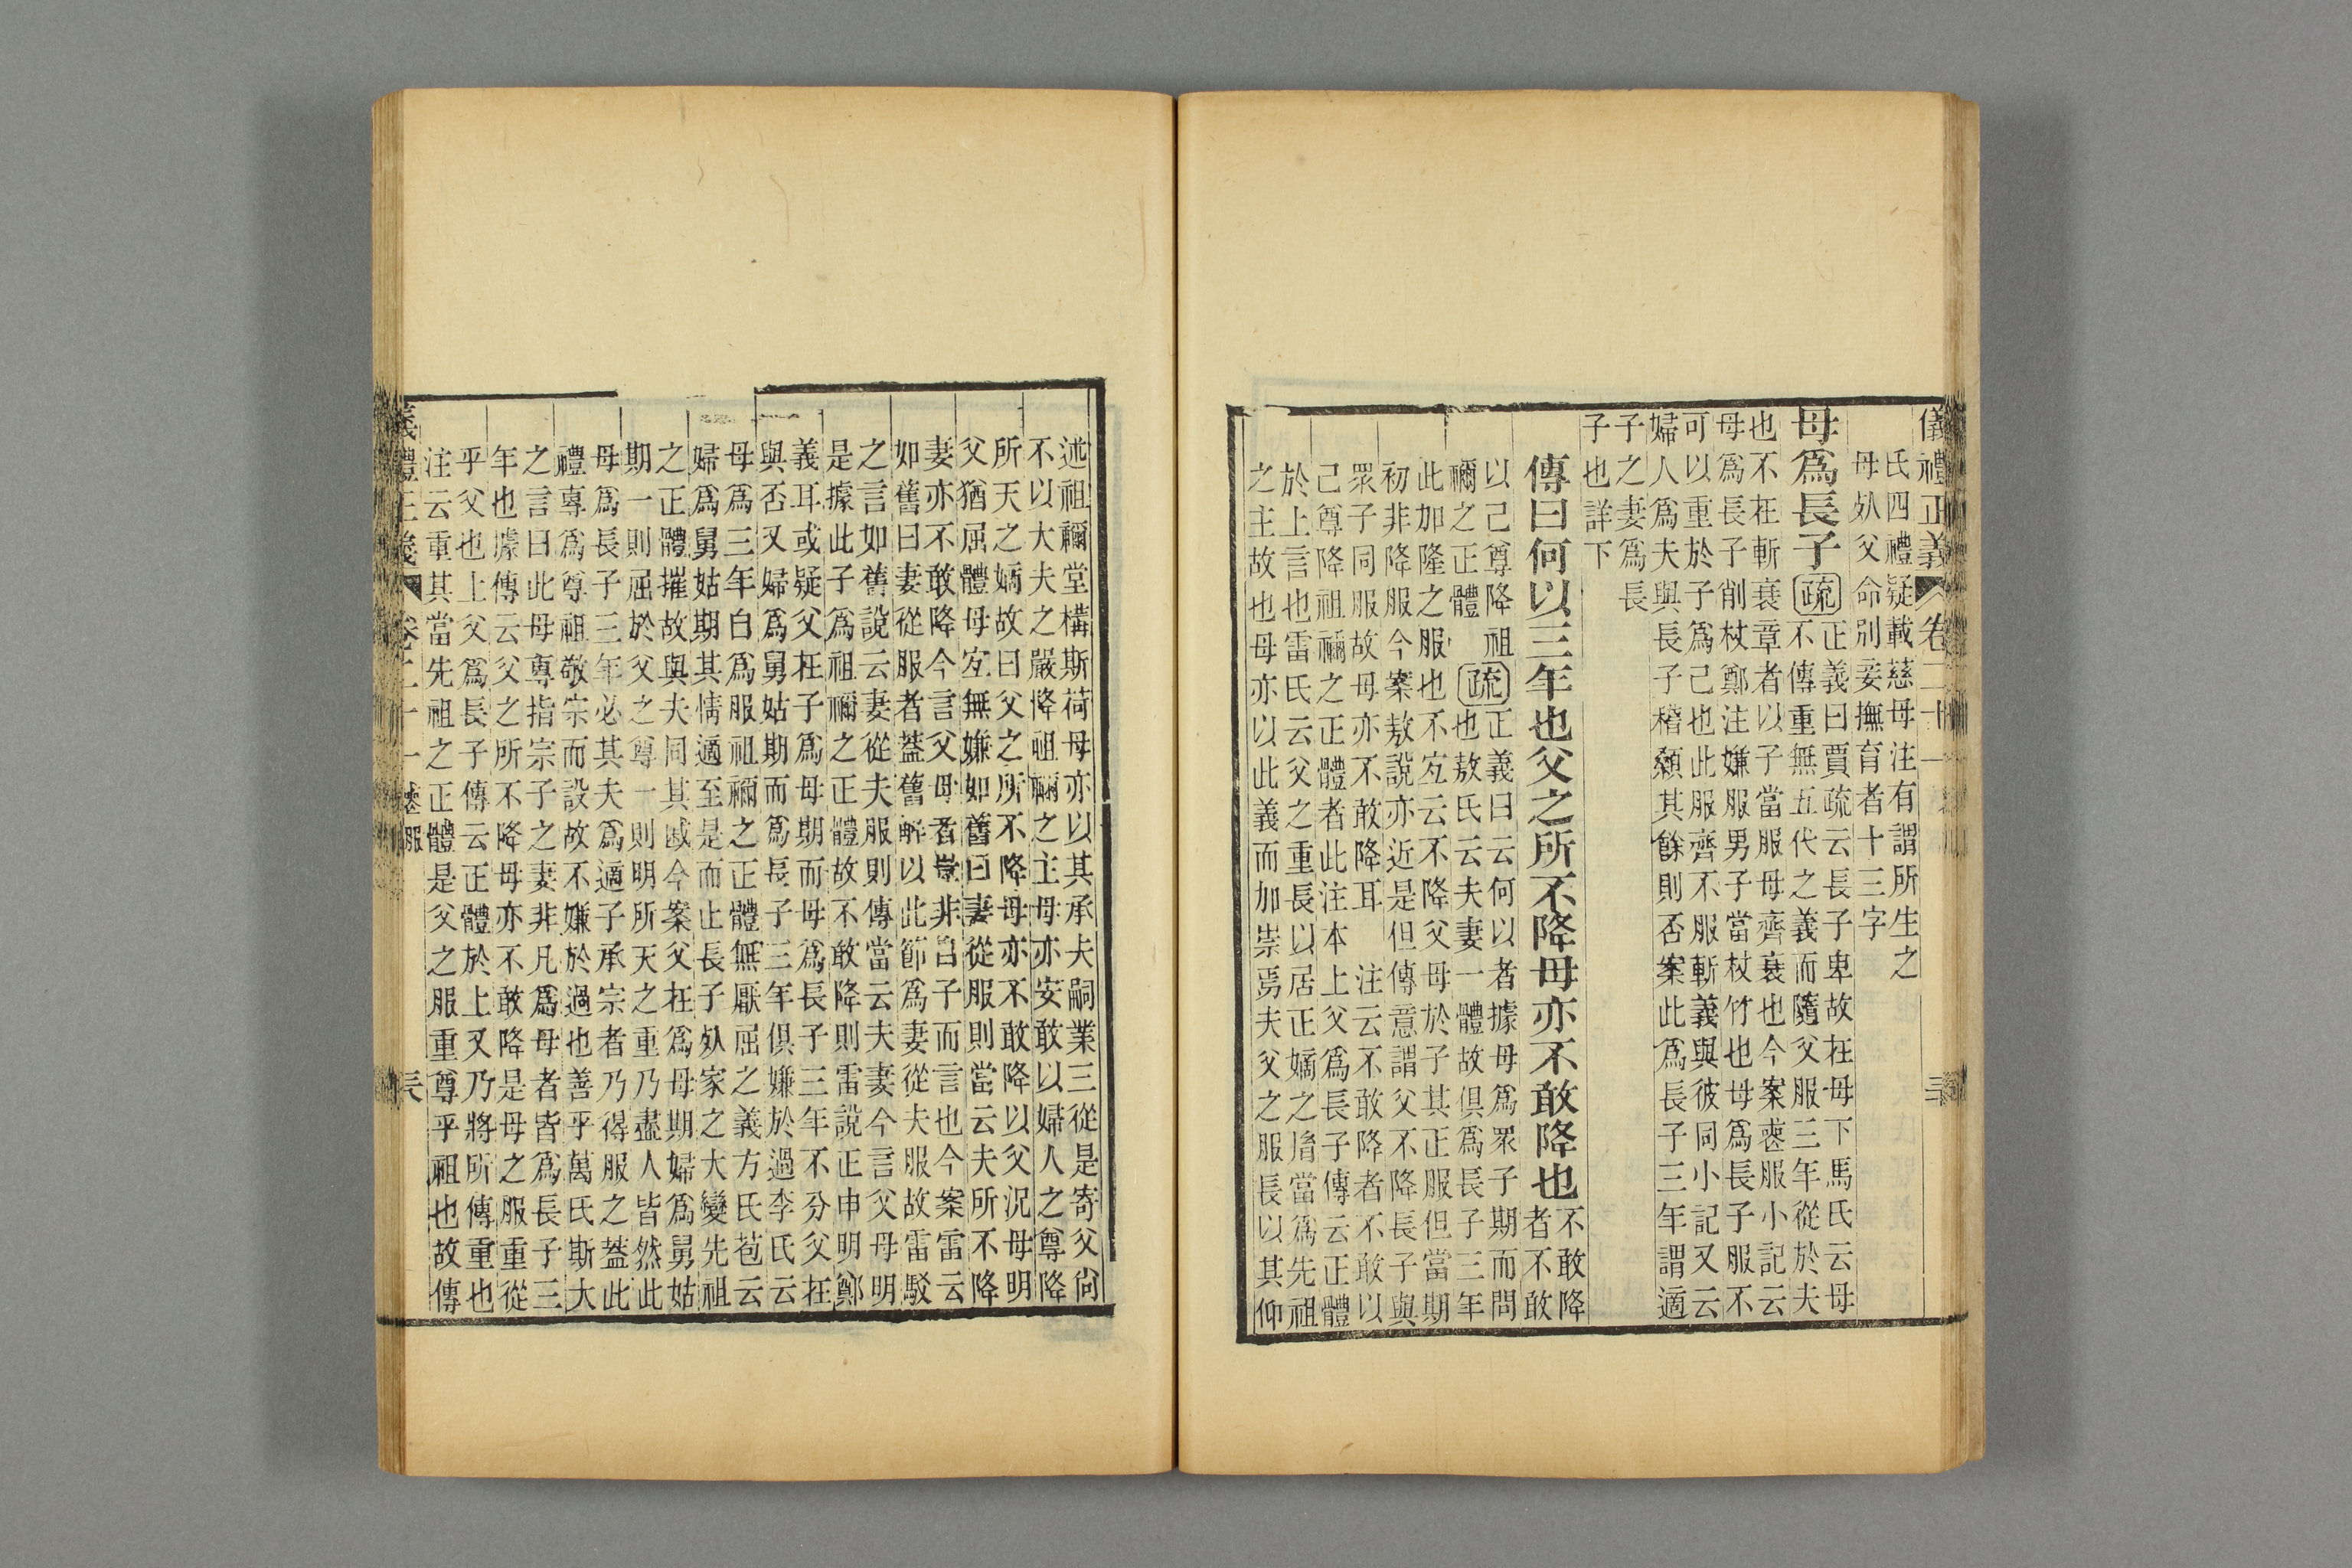 儀禮正義 卷二十一 三
氏四禮疑載慈母注有謂所生之
母歿父命別妾撫育者十三字
母爲長子 疏 正義曰賈疏云長子卑故在母下馬氏云母
不傳重無五代之義而隨父服三年從於夫
也不在斬衰章者以子當服母齊衰也今案喪服小記云
母爲長子削杖鄭注嫌服男子當杖竹也母爲長子服不
可以重於子爲己也此服齊不服斬義與彼同小記又云
婦人爲夫與長子稽顙其餘則否案此爲長子三年謂適
子之妻爲長
子也詳下
傳曰何以三年也父之所不降母亦不敢降也 不敢降
者不敢
以己尊降祖
禰之正體 疏 正義曰云何以者據母爲眾子期而問
也敖氏云夫妻一體故俱爲長子三年
此加隆之服也不宐云不降父母於子其正服但當期
初非降服今案敖說亦近是但傳意謂父不降長子與
眾子同服故母亦不敢降耳 注云不敢降者不敢以
己尊降祖禰之正體者此注本上父爲長子傳云正體
於上言也雷氏云父之重長以居正嫡之胤當爲先祖
之主故也母亦以此義而加崇焉夫父之服長以其仰
述祖禰堂構斯荷母亦以其承夫嗣業三從是寄父尙
不以大夫之嚴降祖禰之主母亦安敢以婦人之尊降
所天之嫡故曰父之所不降母亦不敢降以父況母明
父猶屈體母宐無嫌如舊曰妻從服則當云夫所不降
妻亦不敢降今言父母者豈非旨子而言也今案雷云
如舊曰妻從服者葢舊解以此節爲妻從夫服故雷駁
之言如舊說云妻從夫服則傳當云夫妻今言父母明
是據此子爲祖禰之正體故不敢降則雷說正申明鄭
義耳或疑父在子爲母期而母爲長子三年不分父在
與否又婦爲舅姑期而爲長子三年俱嫌於過李氏云
母爲三年自爲服祖禰之正體無厭屈之義方氏苞云
婦爲舅姑期其情適至是而止長子歿家之大變先祖
之正體摧故與夫同其慼今案父在爲母期婦爲舅姑
期一則屈於父之尊一則明所天之重乃盡人皆然此
母爲長子三年必其夫爲適子承宗者乃得服之葢此
禮專爲尊祖敬宗而設故不嫌於過也善乎萬氏斯大
之言曰此母尊指宗子之妻非凡爲母者皆爲長子三
年也據傳云父之所不降母亦不敢降是母之服重從
乎父也上父爲長子傳云正體於上又乃將所傳重也
注云重其當先祖之正體是父之服重尊乎祖也故傳
義禮正義 卷二十一 喪服